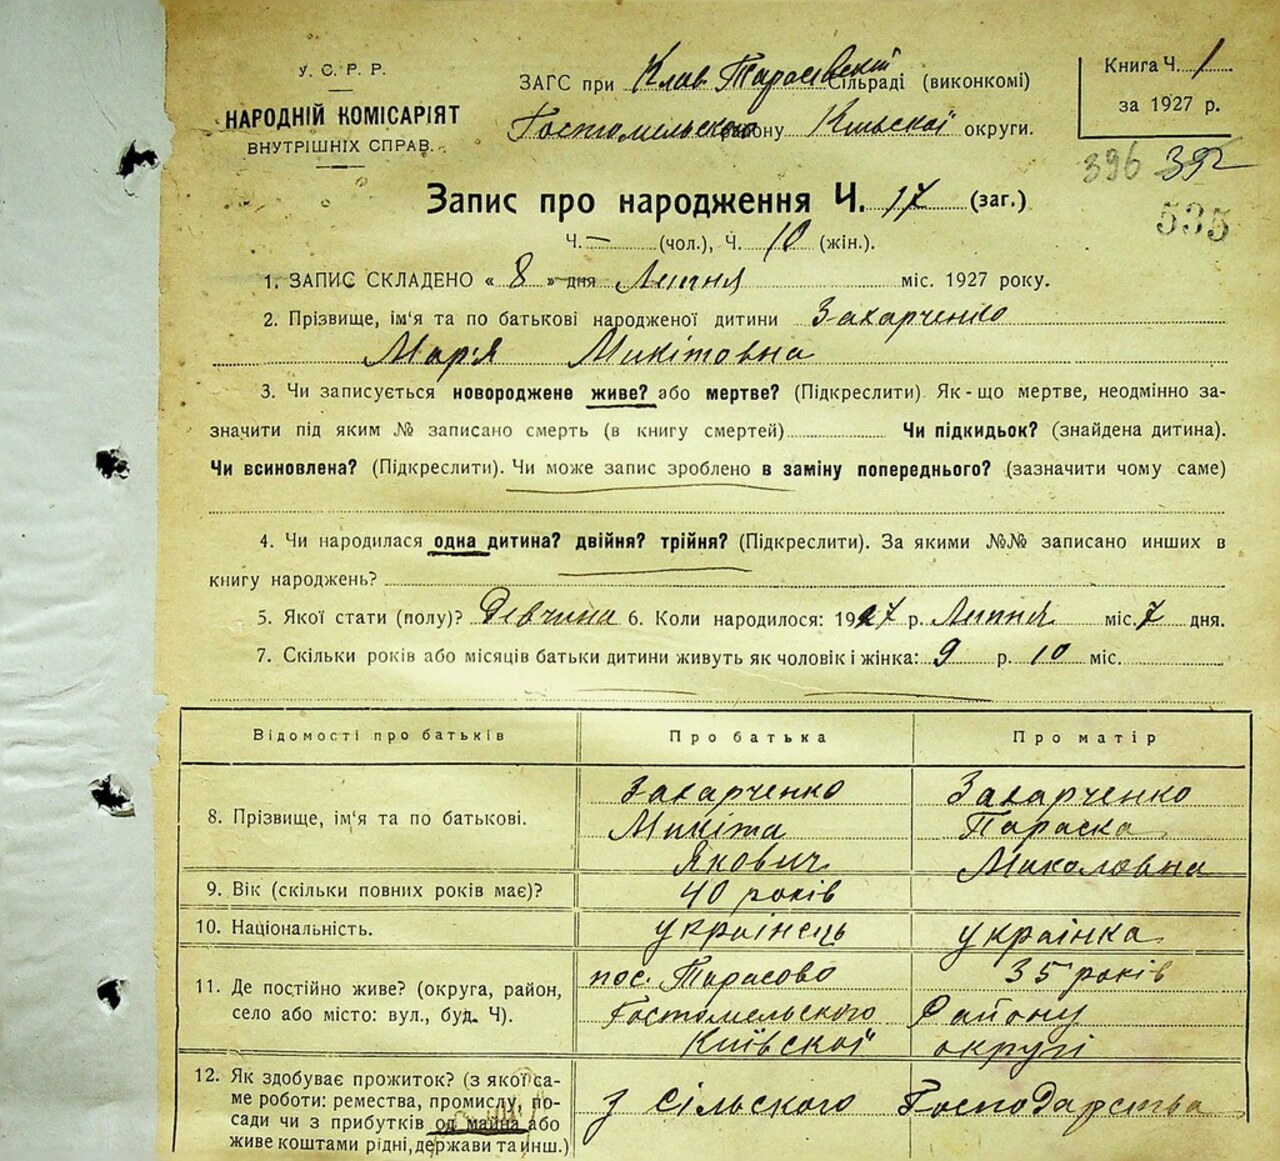 У. С. Р. Р.
НАРОДНІЙ КОМІСАРІЯТ
ВНУТРІШНІХ СПРАВ.
ЗАГС при Клав. Тарасівскій Сільраді (виконкомі)
Гостомельского району Київскої округи.
Книга Ч. 1
за 1927 р.
396 392
535
Запис про народження Ч. 17 (заг.)
Ч. — (чол.), Ч. 10 (жін.).
1. ЗАПИС СКЛАДЕНО « 8 » дня Липня міс. 1927 року.
2. Прізвище, ім'я та по батькові народженої дитини Захарченко
Мар'я Микітовна
3. Чи записується новороджене живе? або мертве? (Підкреслити) Як-що мертве, неодмінно за-
значити під яким № записано смерть (в книгу смертей) Чи підкидьок? (знайдена дитина).
Чи всиновлена? (Підкреслити). Чи може запис зроблено в заміну попереднього? (зазначити чому саме)
4. Чи народилася одна дитина? двійня? трійня? (Підкреслити). За якими №№ записано инших в
книгу народжень?
5. Якої стати (полу)? Дівчина 6. Коли народилося: 1927 р. Липня міс. 7 дня.
7. Скільки років або місяців батьки дитини живуть як чоловік і жінка: 9 р. 10 міс.
Відомості про батьків Про батька Про матір
8. Прізвище, ім'я та по батькові.
Захарченко Захарченко
Микіта Параска
Якович Миколовна
9. Вік (скільки повних років має)? 40 років
10. Національність. українець українка
11. Де постійно живе? (округа, район,
село або місто: вул., буд. Ч).
пос. Тарасово 35 років
Гостомельского Району
Київскої округі
12. Як здобуває прожиток? (з якої са-
ме роботи: ремества, промислу, по-
сади чи з прибутків од майна або
живе коштами рідні, держави та инш.)
з сільского Господарства